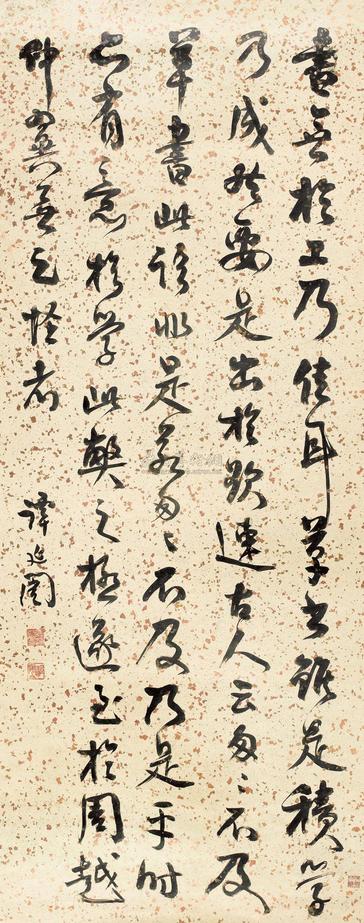 書無於工乃佳耳草書雖是積學
乃成然要是出於欲速古人云匆匆不及
草書此語非是若匆匆不及乃是平時
亦有意於學此弊之極遂至於周越
仲翼無足怪者
譚延闓